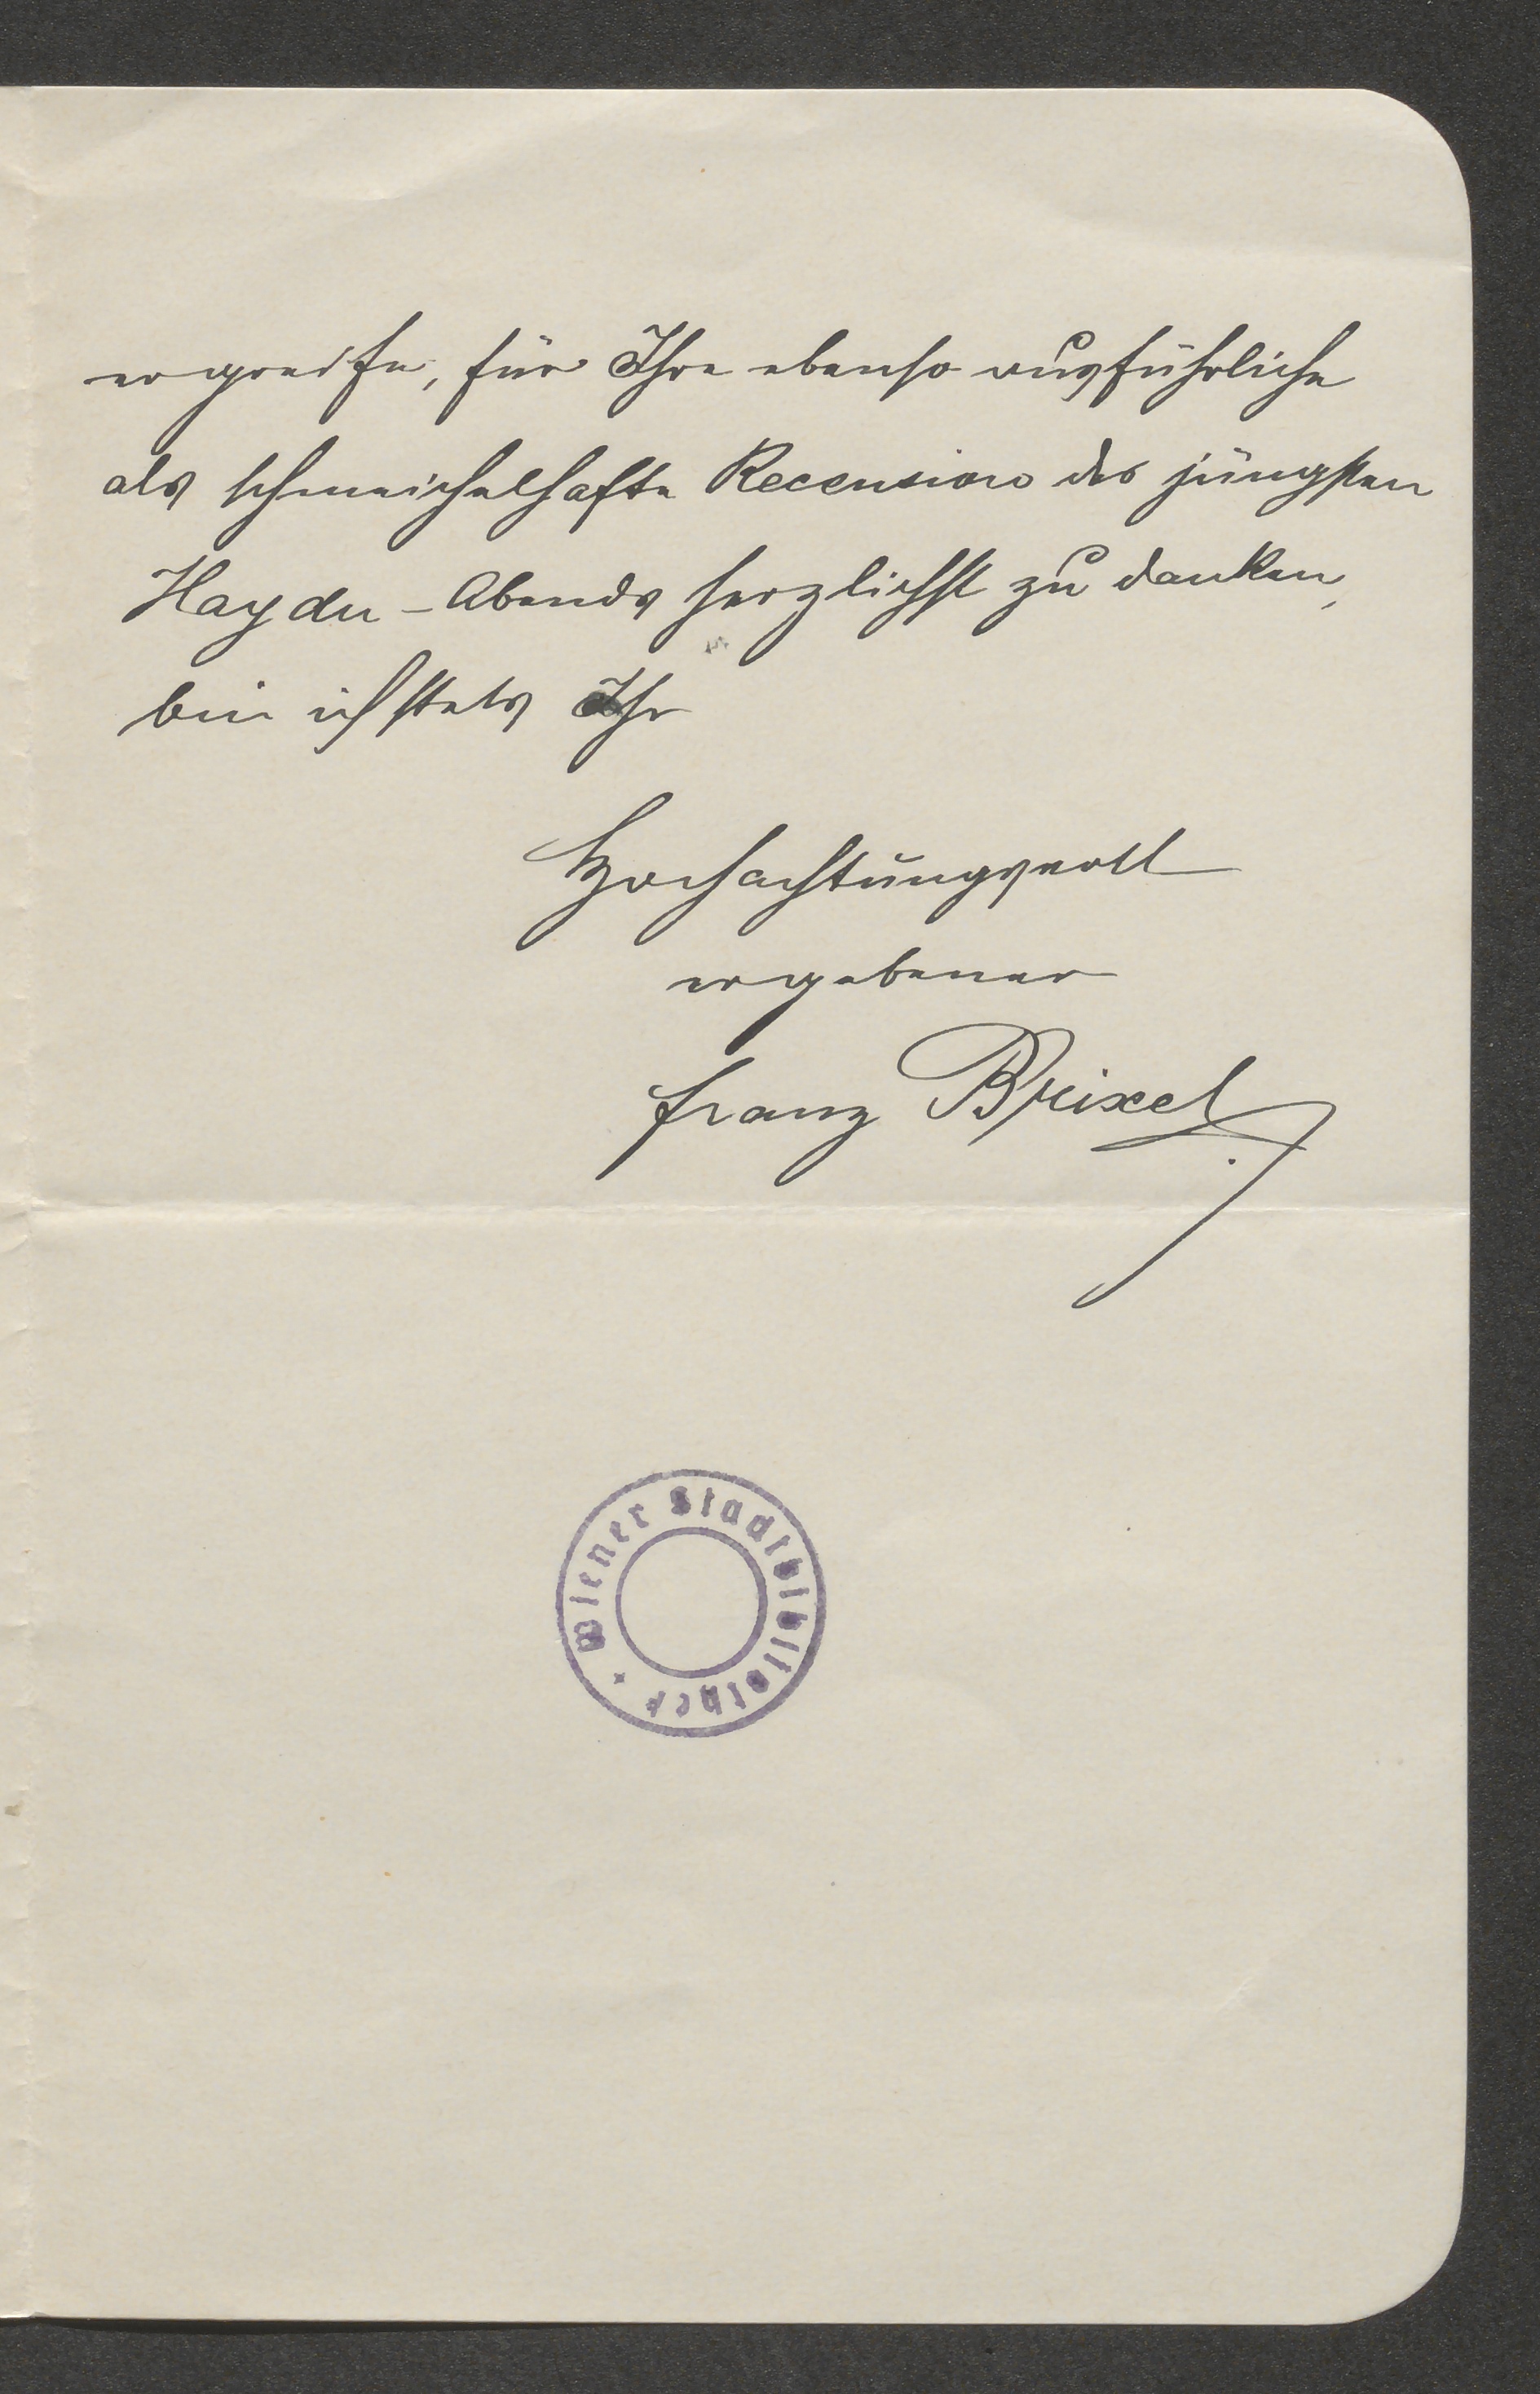 ergreife, für Ihre ebenso ausführliche
als schmeichelhafte Recension des jüngsten
Haydn-Abends herzlichst zu danken,
bin ich stets Ihr
Hochachtungsvoll
ergebener
Franz Brixel.
Wiener Stadtbibliothek